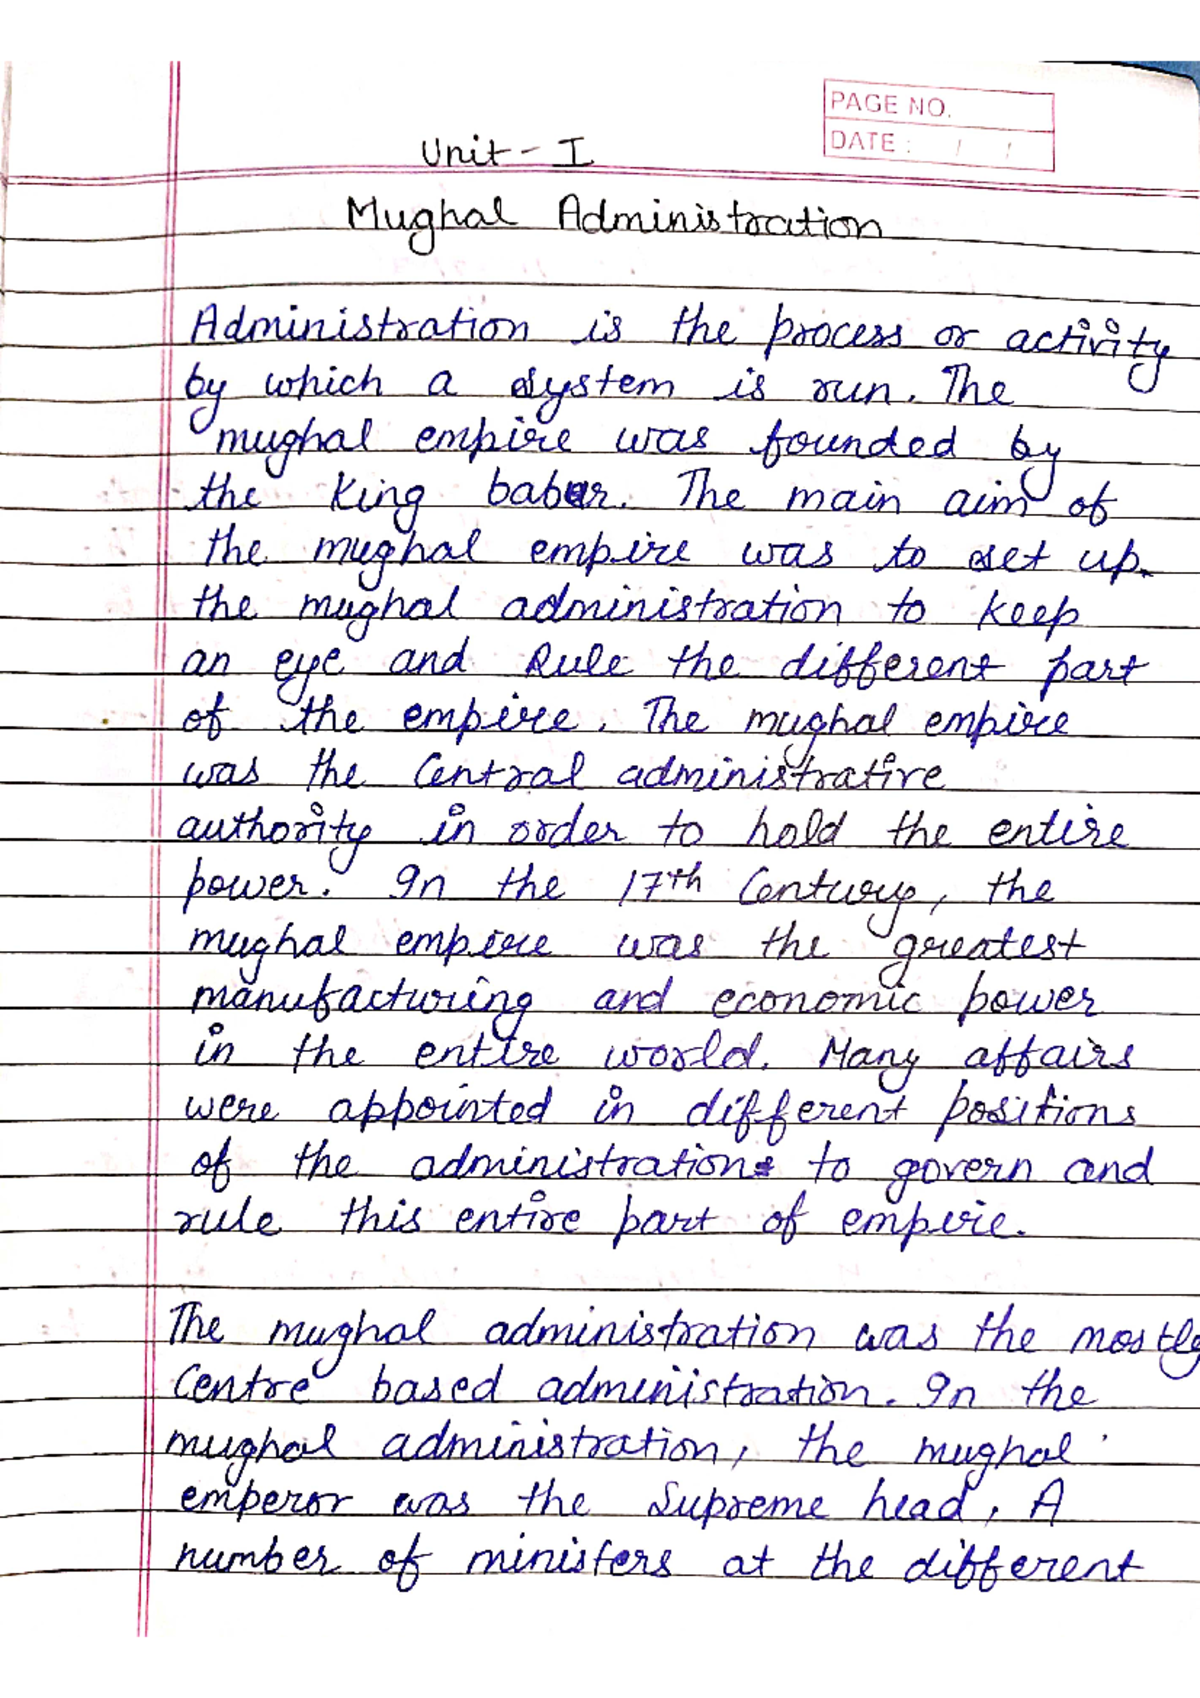 PAGE NO.
DATE : / /
Unit - I
Mughal Administration
Administration is the process or activity
by which a system is run. The
mughal empire was founded by
the King babur. The main aim of
the mughal empire was to set up.
the mughal administration to keep
an eye and Rule the different part
of the empire. The mughal empire
was the Central administrative
authority in order to hold the entire
power. In the 17th Century, the
mughal empire was the greatest
manufacturing and economic power
in the entire world. Many affairs
were appointed in different positions
of the administration to govern and
rule this entire part of empire.
The mughal administration was the mostly
Centre based administration. In the
mughal administration, the mughal
emperor was the Supreme head. A
number of ministers at the different